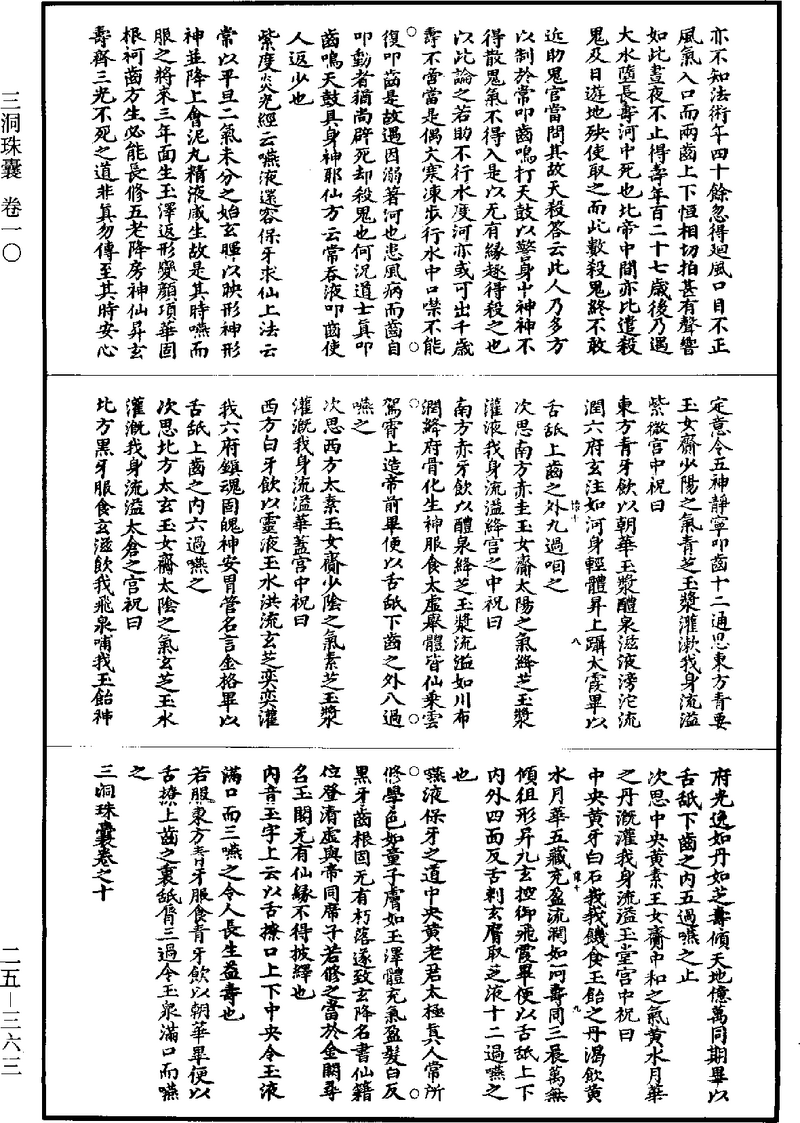 三洞珠囊 卷一〇
二五—三六三
亦不知法術年四十餘忽得廻風口目不正
風氣入口而兩齒上下恒相切拍甚有聲響
如此晝夜不止得壽年百二十七歲後乃遇
大水墮長壽河中死也比帝中間亦比遣殺
鬼及日遊地殃使取之而此數殺鬼終不敢
近助鬼官當問其故天殺荅云此人乃多方
以制於常叩齒鳴打天鼓以警身中神神不
得散鬼氣不得入是以无有緣趂得殺之也
以此論之若助不行水度河亦或可出千歲
壽不啻當是偶大寒凍步行水中口噤不能
復叩齒是故遇因溺著河也患風病而齒自
叩動者猶尚辟死却殺鬼也何況道士真叩
齒鳴天鼓具身神耶仙方云常吞液叩齒使
人返少也
紫度炎光經云嚥液還容保牙求仙上法云
常以平旦二氣未分之始玄暉以映形神形
神並降上會泥丸精液咸生故是其時嚥而
服之將來三年面生玉澤返形變顏項華固
根神齒方生必能長修五老降房神仙昇玄
壽齊三光不死之道非真勿傳至其時安心
定意令五神靜寧叩齒十二通思東方青要
玉女齋少陽之氣青芝玉漿灌漱我身流溢
紫微宫中祝曰
東方青牙飲以朝華玉漿醴泉滋液滂沱流
潤六府玄注如河身輕體昇上躡太霞畢以
舌舐上齒之外九過咽之
次思南方赤圭玉女齋太陽之氣絳芝玉漿
灌液我身流溢絳宫之中祝曰
南方赤牙飲以醴泉絳芝玉漿流溢如川布
潤絳府骨化生神服食太虛舉體皆仙乗雲
駕霄上造帝前畢便以舌舐下齒之外八過
嚥之
次思西方太素玉女齋少陰之氣素芝玉漿
灌溉我身流溢華蓋宫中祝曰
西方白牙飲以靈液玉水洪流玄芝奕奕灌
我六府鎮魂固魄神安胃管名言金格畢以
舌舐上齒之内六過嚥之
次思北方太玄玉女齋太陰之氣玄芝玉水
灌溉我身流溢太倉之宫祝曰
北方黑牙服食玄滋飲我飛泉哺我玉飴神
府光逸如丹如芝壽傾天地億萬同期畢以
舌舐下齒之内五過嚥之止
次思中央黄素玉女齋中和之氣黄水月華
之丹溉灌我身流溢玉堂宫中祝曰
中央黄牙白石我我饑食玉飴之丹渴飲黄
水月華五藏充盈流潤如河壽同三晨萬無
傾徂形昇九玄控御飛霞畢便以舌舐上下
内外四面反舌刺玄膺取芝液十二過嚥之
也
嚥液保牙之道中央黄老君太極真人常所
修學色如童子膚如玉澤體充氣盈髮白反
黑牙齒根固无有朽落遂致玄降名書仙籍
位登清虛與帝同席子若修之當於金閼尋
名玉閣无有仙緣不得披繹也
内音玉字上云以舌撩口上下中央令玉液
滿口而三嚥之令人長生益壽也
若服東方青牙服食青牙飲以朝華畢便以
舌撩上齒之裏舐脣三過令玉泉滿口而嚥
之
三洞珠囊卷之十